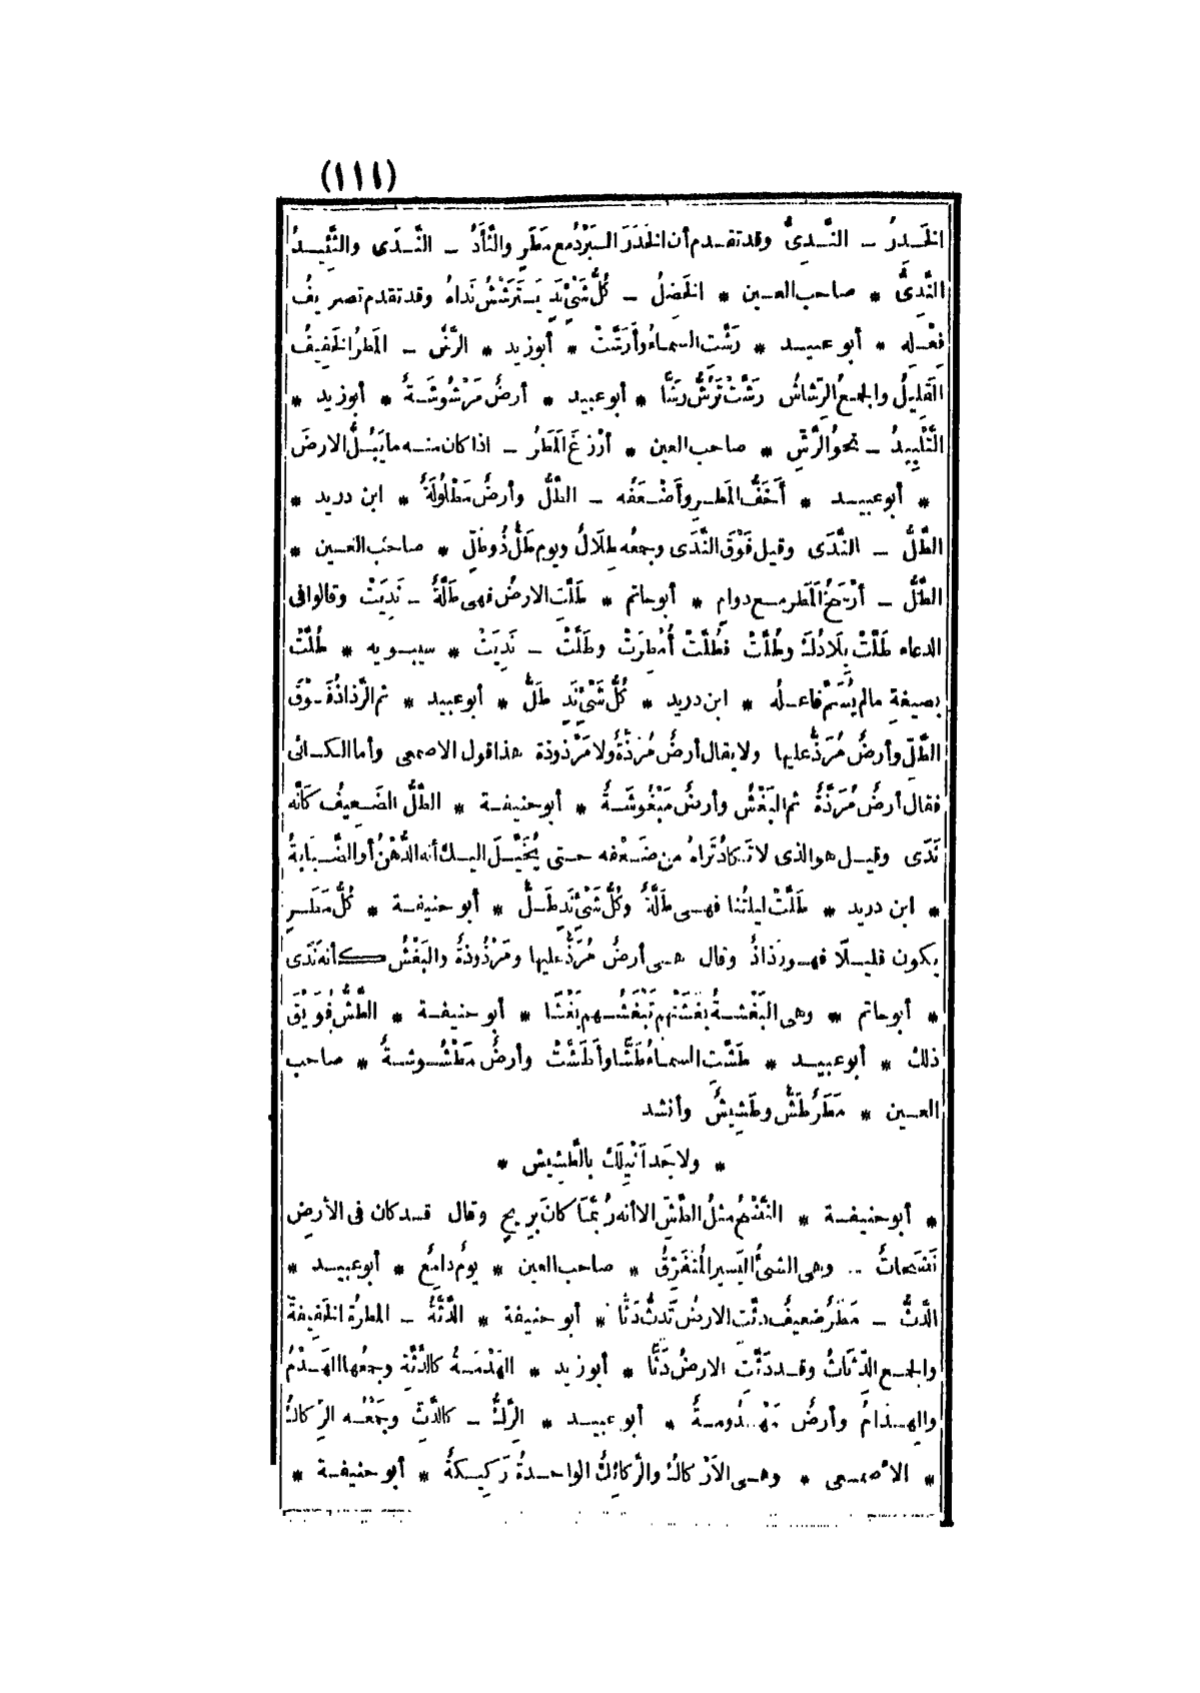 (١١١)
الخَدَرُ - النَّدِىُّ وقد تقدم أن الخَدَرَ البَرْدُ مع مَطَرٍ والثَّأَدُ - النَّدَى والثَّئِدُ
النَّدِىُّ * صاحب العين * الخَضِلُ - كُلُّ شَىْءٍ نَدٍ يَتَرَشْرَشُ نَداهُ وقد تقدم تصريفُ
فِعْله * أبو عبيد * رَشَّت السماءُ وأَرَشَّتْ * أبوزيد * الرَّشُّ - المَطَرُ الخَفِيفُ
القَلِيلُ والجمعُ الرِّشاشُ رَشَّتْ تَرُشُّ رَشًّا * أبوعبيد * أرضٌ مَرْشُوشَةٌ * أبوزيد *
التَّلْبِيدُ - نحوُ الرَّشِّ * صاحب العين * أَرْزَغَ المَطَرُ - اذا كان منه ما يَبُلُّ الارضَ
* أبوعبيد * أَخَفُّ المَطَرِ وأَضْعَفُه - الطَّلُّ وأرضٌ مَطْلُولَةٌ * ابن دريد *
الطَّلُّ - النَّدَى وقيل فَوْقَ النَّدَى وجمعُه طِلَالٌ ويوم طَلٌّ ذُو طَلٍّ * صاحب العين *
الطَّلُّ - أَرْسَخُ المَطَر مع دوامٍ * أبوحاتم * طَلَّت الارضُ فهى طَلَّةٌ - نَدِيَتْ وقالوا فى
الدعاء طَلَّتْ بِلَادُكَ وطُلَّتْ فطُلَّتْ أُمْطِرَتْ وطَلَّتْ - نَدِيَتْ * سيبويه * طُلَّتْ
بصيغةِ ما لم يُسَمَّ فاعلُه * ابن دريد * كُلُّ شَىْءٍ نَدٍ طَلٌّ * أبوعبيد * ثم الرَّذاذُ فَوْقَ
الطَّلِّ وأرضٌ مُرَذٌّ عليها ولا يقال أرضٌ مُرَذَّةٌ ولا مَرْذوذة هذا قول الاصمعى وأما الكسائى
فقال أرضٌ مُرَذَّةٌ ثم البَغْشُ وأرضٌ مَبْغُوشَةٌ * أبوحنيفة * الطَّلُّ الضَّعِيفُ كأنَّه
نَدًى وقيل هو الذى لا تَكادُ تَراهُ من ضَعْفه حتى يُخَيَّل اليك أنه الدُّهْنُ أو الضَّبَابةُ
* ابن دريد * طَلَّتْ ليلتُنا فهى طَلَّةٌ وكُلُّ شَىْءٍ نَدٍ طَلٌّ * أبو حنيفة * كُلُّ مَطَرٍ
يكون قليلًا فهو رَذاذٌ وقال هى أرضٌ مُرَذٌّ عليها ومَرْذُوذةٌ والبَغْشُ كأنه نَدًى
* أبوحاتم * وهى البَغْشةُ بَغَشَتْهم تَبْغَشُهم بَغْشًا * أبو حنيفة * الطَّشُّ فُوَيْقَ
ذلك * أبوعبيد * طَشَّت السماءُ طَشًّا وأَطَشَّتْ وأرضٌ مَطْشُوشةٌ * صاحب
العين * مَطَرٌ طَشٌّ وطَشِيشٌ وأنشد
* ولا جَدا نَيْلِكَ بالطَّشِيشِ *
* أبوحنيفة * النَّفْحُ مثلُ الطَّشِّ الا أنه رُبَّمَا كانَ بِرِيحٍ وقال قد كان فى الأرضِ
.. وهى الشئُ اليَسِير المُتفَرِّقُ * صاحب العين * يومٌ دامِعٌ * أبوعبيد *
الدَّثُّ - مَطَرٌ ضعيفٌ دثَّت الارضُ تُدَثُّ دَثًّا * أبو حنيفة * الدَّثَّةُ - المطرةُ الخَفِيفةُ
والجمع الدِّثَاثُ وقد دَثَّتِ الارضُ دَثًّا * أبوزيد * الهَدْمَةُ كالدَّثَّةِ وجمعُها الهِدَمُ
والهِدَامُ وأرضٌ مَهْدُومةٌ * أبوعبيد * الرِّكُّ - كالدَّثِّ وجَمْعُه الرِّكاكُ
* الأصمعى * وهى الأَرْكاكُ والرَّكائِكُ الواحدةُ رَكِيكةٌ * أبوحنيفة *